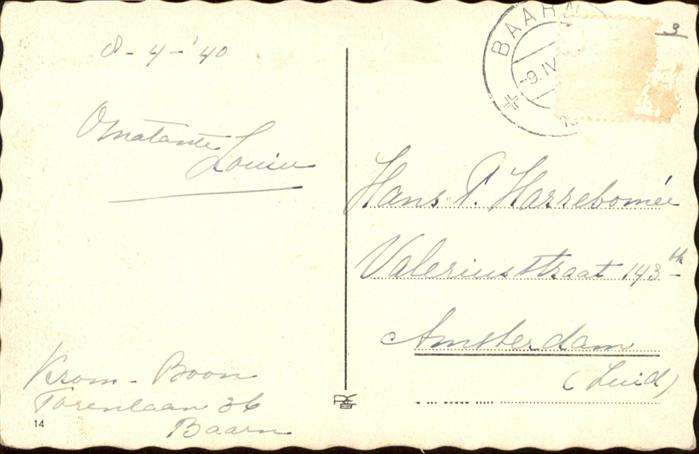 8-4-'40
Omatante
Louise
Krom-Boon
Torenlaan 36
Baarn
14
BAARN
9.IV
3
Hans P. Harrebomée
Valeriusstraat 143 hs
Amsterdam
(Zuid)